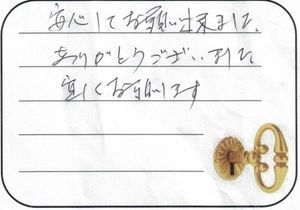 安心してお願い出来ました。
ありがとうございました
宜しくお願いします